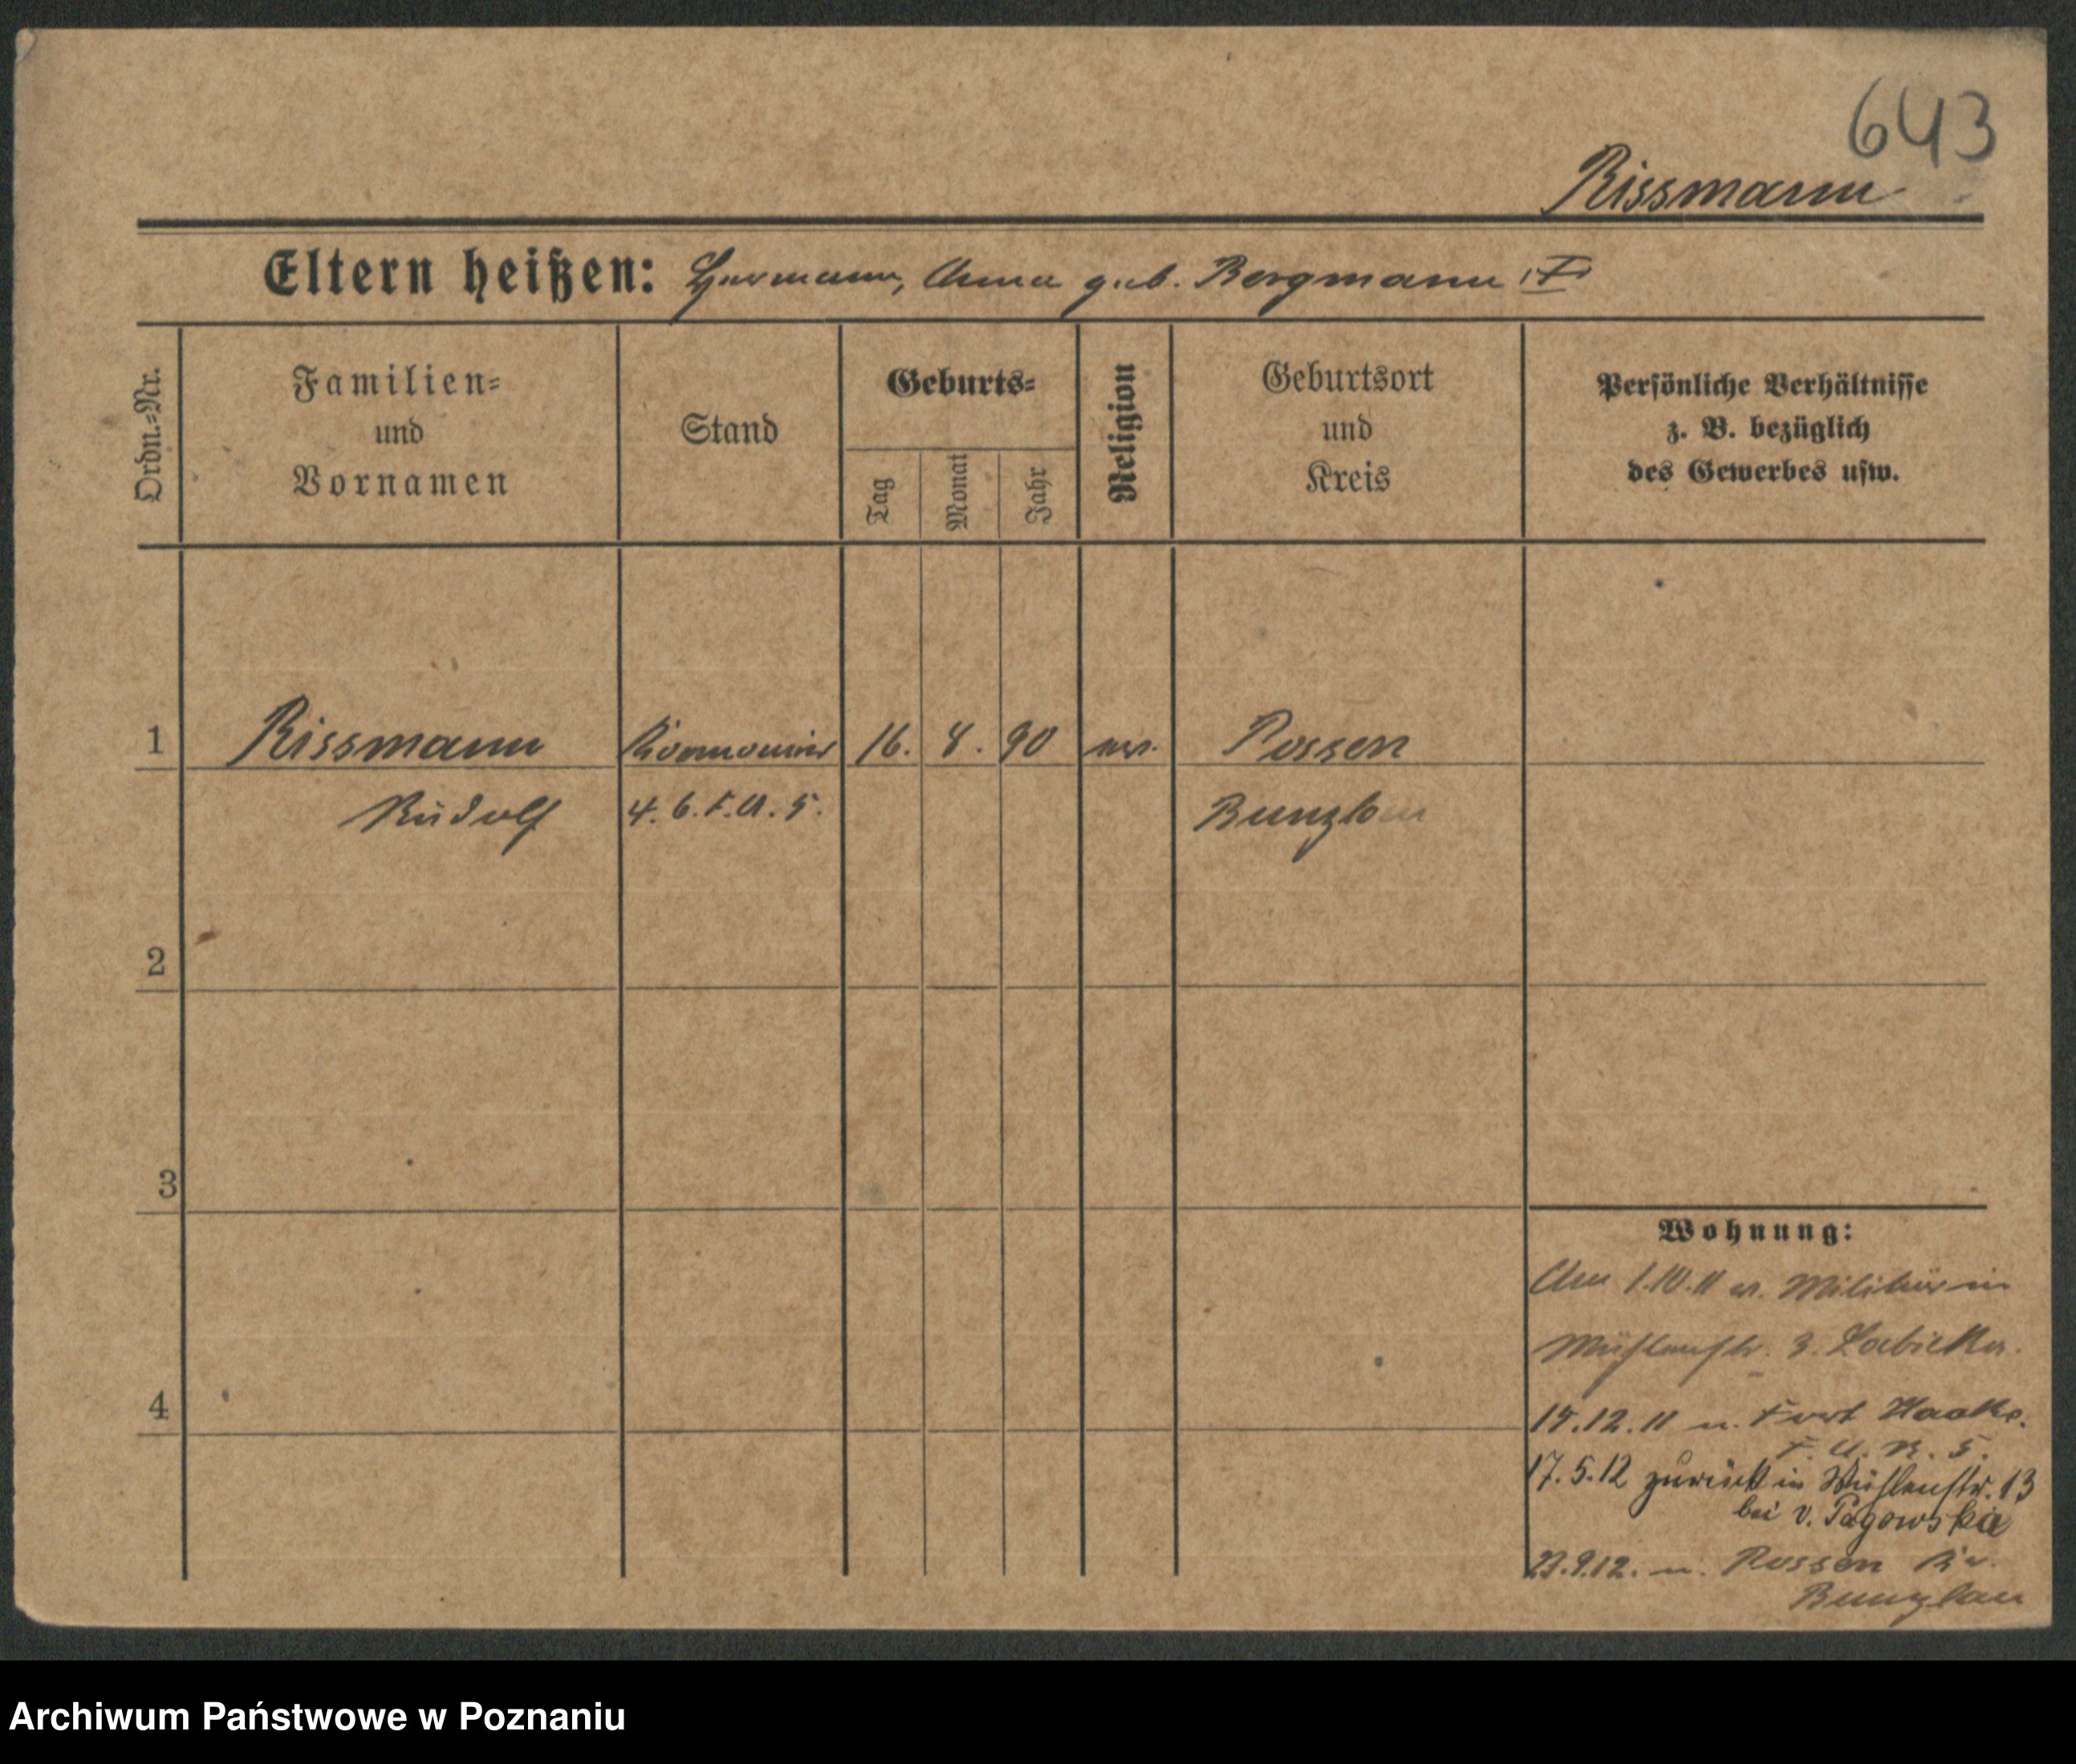 643
Rissmann
Eltern heißen: Hermann, Anna geb. Bergmann
Ordn.=Nr.
Familien=
und
Vornamen
Stand
Geburts=
Tag
Monat
Jahr
Religion
Geburtsort
und
Kreis
Persönliche Verhältnisse
z. B. bezüglich
des Gewerbes usw.
1 Rissmann Kanonier 16. 8. 90 ev. Possen
Rudolf 4. 6. F. A. 5. Bunzlau
2
3
4
Wohnung:
1.10.11 Militär in
Mühlenstr. 3.
12.11 n. Fort Haake.
F. A. R. 5.
17.5.12 zurück in Mühlenstr. 13
bei v. Pągowska
23.9.12. n. Possen Kr.
Bunzlau
Archiwum Państwowe w Poznaniu